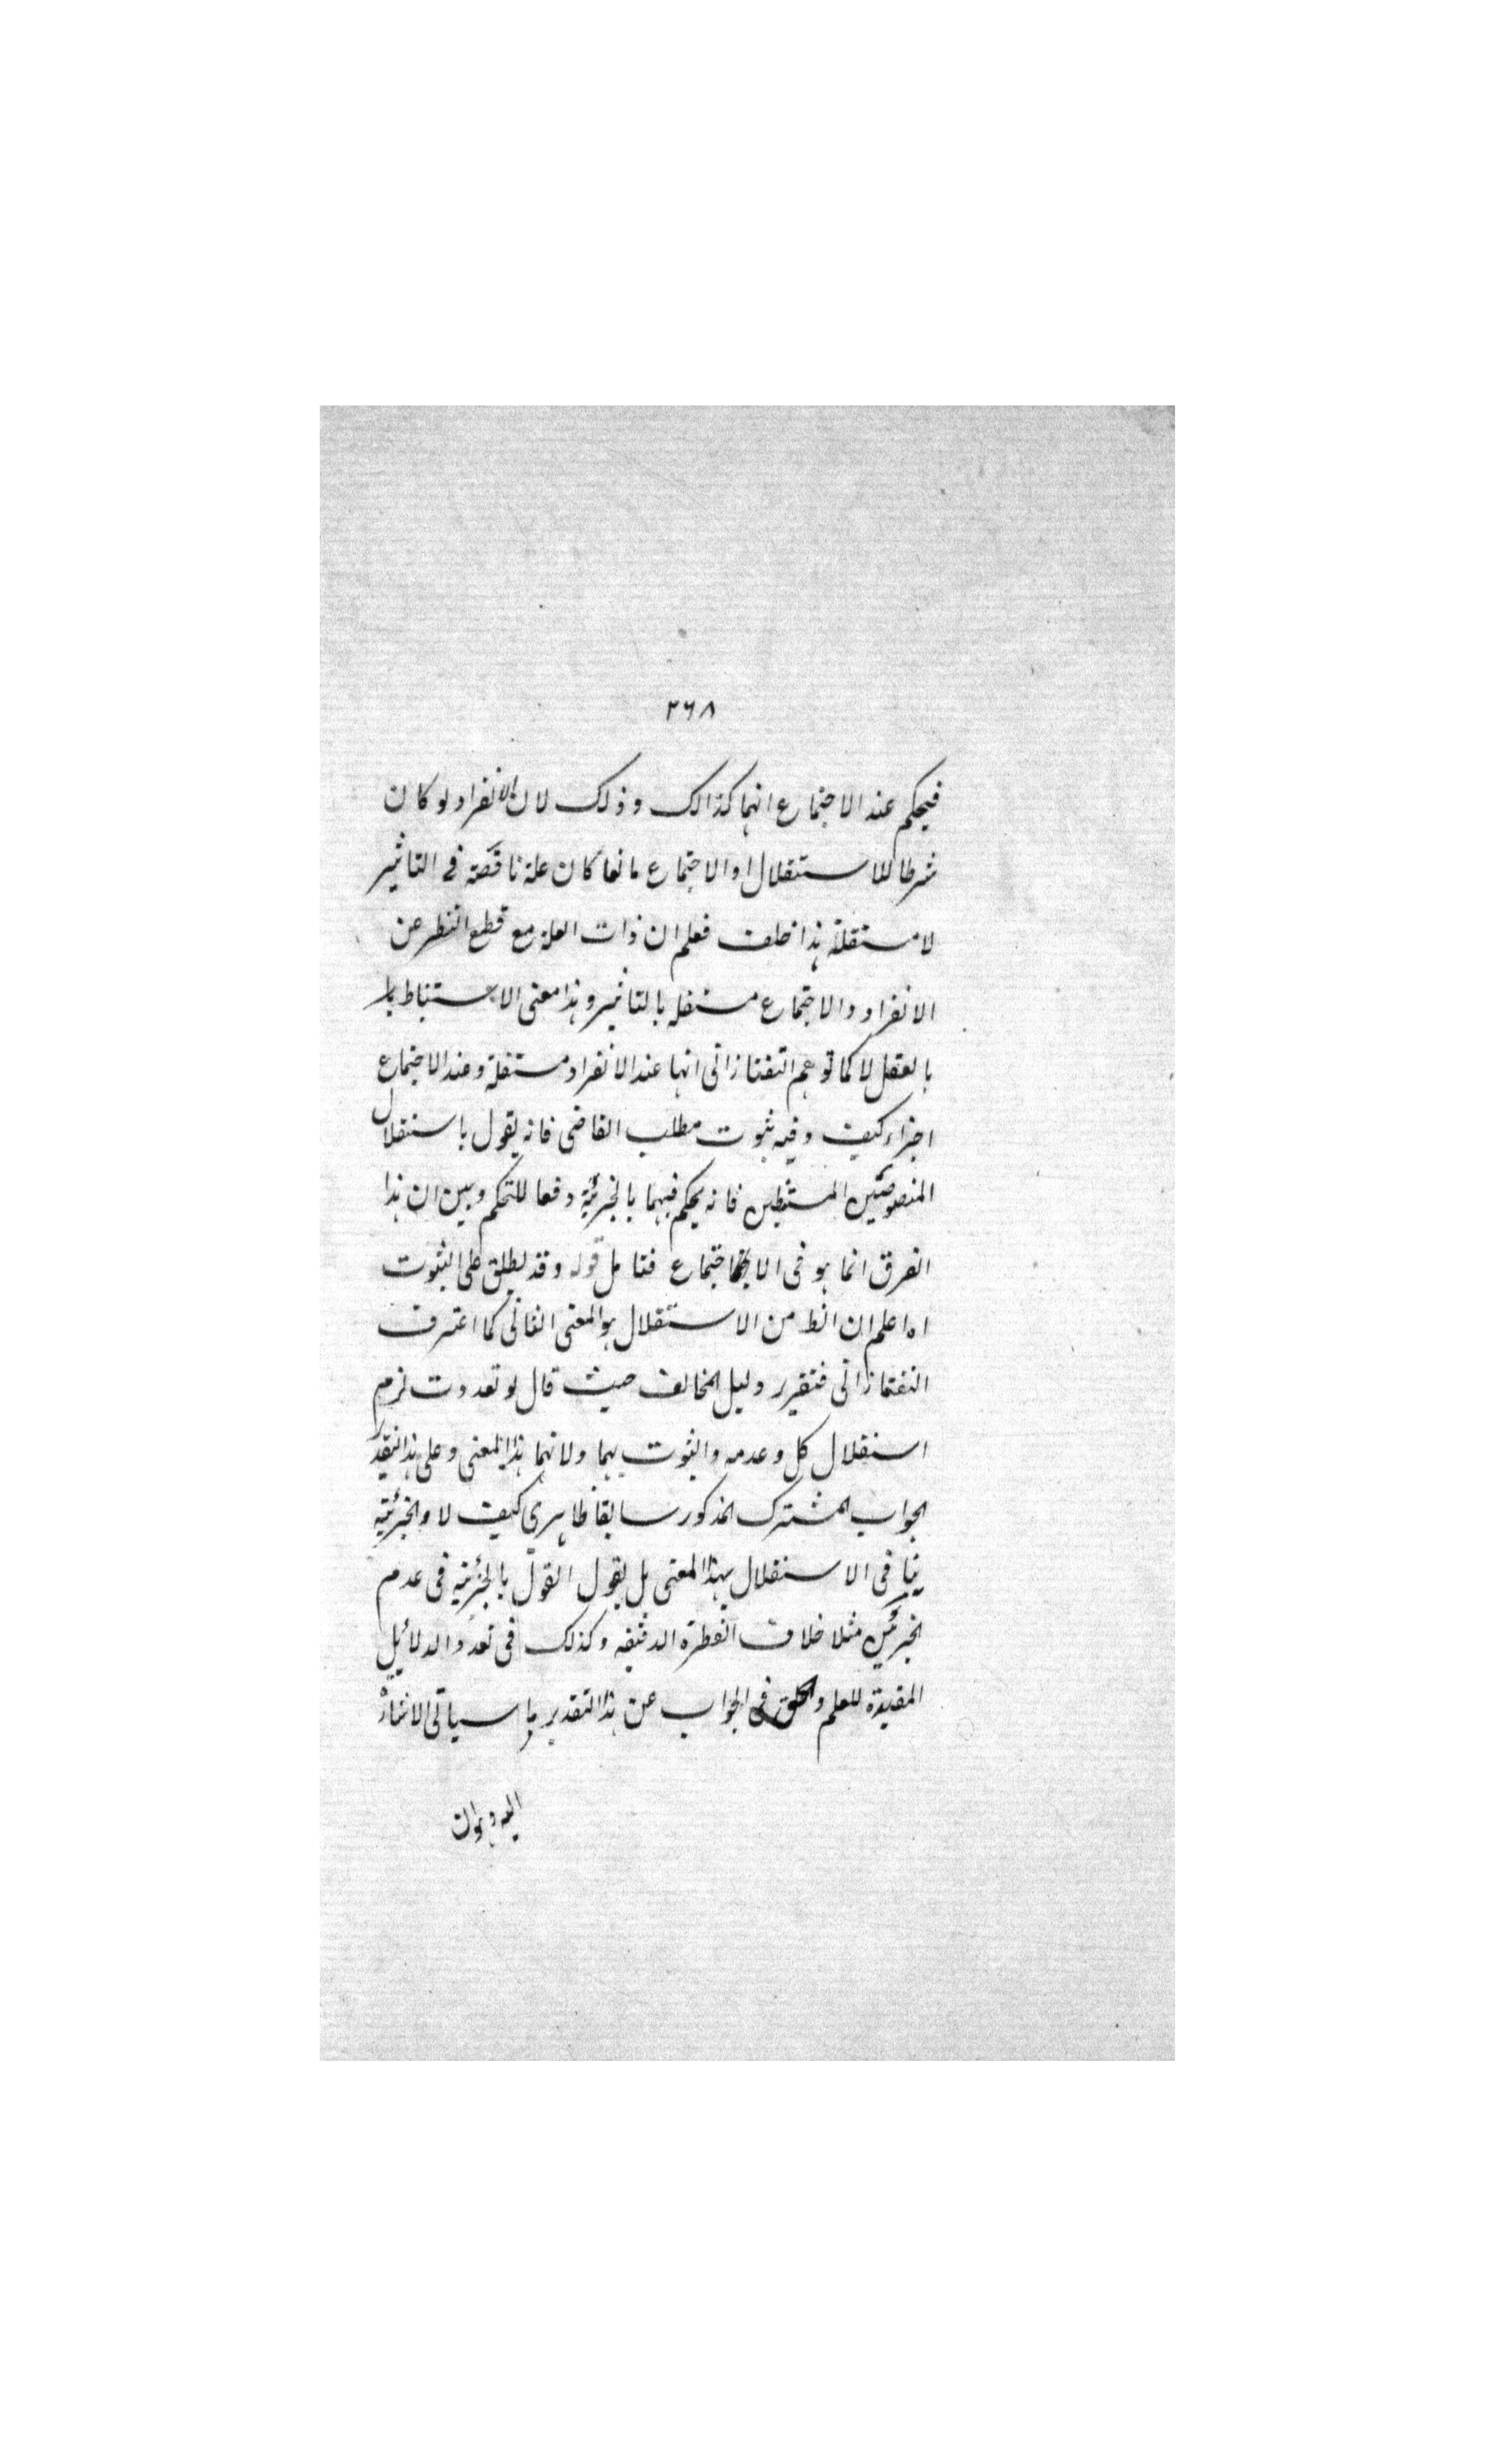 ٢٦٨
فيحكم عند الاجتماع انهما كذالك وذلك لان الانفراد لو كان
شرطا للاستقلال او الاجتماع مانعا كان علة ناقصة فى التاثير
لا مستقلة هذا خلف فعلم ان ذات العلة مع قطع النظر عن
الانفراد والاجتماع مستقلة بالتاثير وهذا معنى الاستنباط
بالعقل لا كما توهم التفتازانى انها عند الانفراد مستقلة وعند الاجتماع
اجزاء كيف وفيه ثبوت مطلب القاضى فانه يقول باستقلال
المنصوصتين المستنبطين فانه يحكم فيهما بالجزئية دفعا للتحكم وبين ان هذا
الفرق انما هو فى الاجتماع فتامل قوله وقد يطلق على الثبوت
اه اعلم ان الظ من الاستقلال هو المعنى الثانى كما اعترف
التفتازانى فتقرير دليل المخالف حيث قال لو تعددت لزم
استقلال كل وعدمه والثبوت بهما ولا بهما بهذا المعنى وعلى هذا التقدير
الجواب المشترك المذكور سابقا ظاهرى كيف لا والجزئية
ينافى الاستقلال بهذا المعنى بل يقول القول بالجزئية فى عدم
الجزئين مثلا خلاف الفطرة الدقيقه وكذلك فى تعدد الدلائل
المفيدة للعلم والحق فى الجواب عن هذا التقدير ما سياتى الاشارة
اليه وهو ان